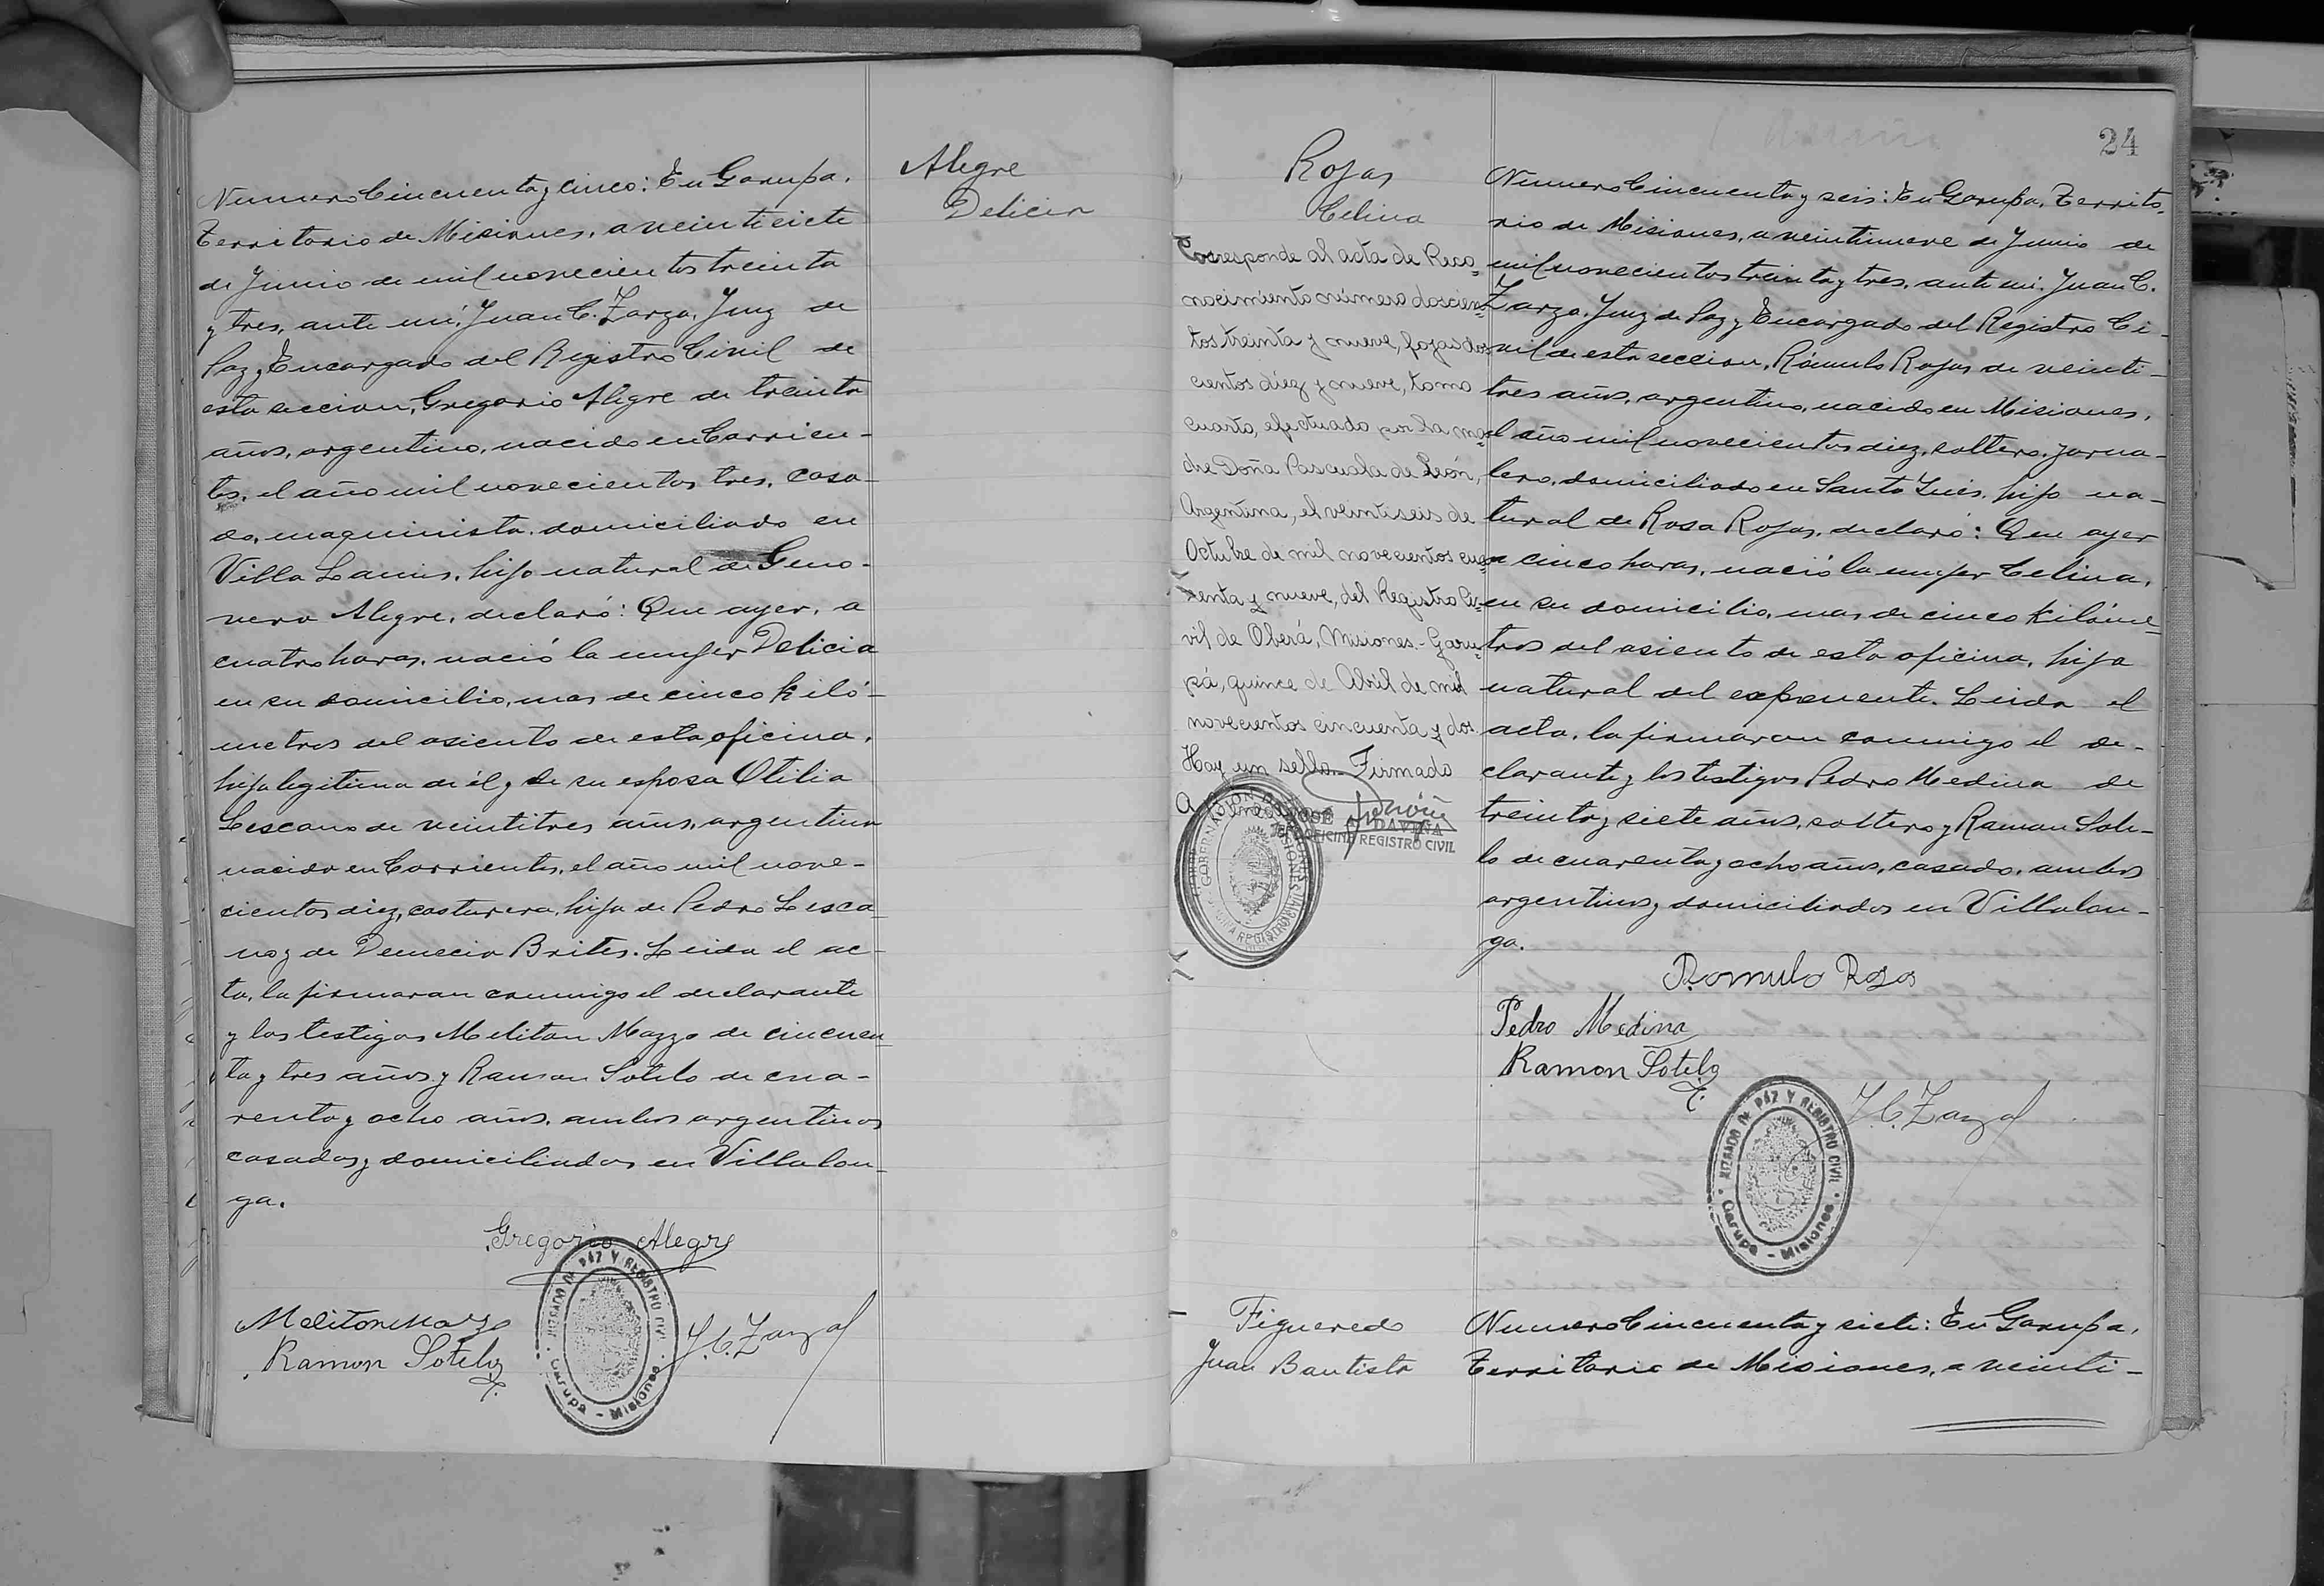 Numero Cincuenta y cinco: En Garupa,
Territorio de Misiones, a veintisiete
de Junio de mil novecientos treinta
y tres, ante mí: Juan C. Zarza, Juez de
Paz y Encargado del Registro Civil de
esta seccion, Gregorio Alegre de treinta
años, argentino, nacido en Corrien-
tes, el año mil novecientos tres, casa-
do, maquinista, domiciliado en
Villa Lanús, hijo natural de Geno-
vera Alegre, declaró: Que ayer, a
cuatro horas, nació la mujer Delicia
en su domicilio, mas de cinco kiló-
metros del asiento de esta oficina,
hija legitima de él y de su esposa Otilia
Lescano de veintitres años, argentina
nacida en Corrientes, el año mil nove-
cientos diez, costurera, hija de Pedro Lesca
no y de Demecia Brites. Leida el ac-
ta, la firmaran conmigo el declarante
y los testigos Meliton Mazzo de cincuen
ta y tres años y Ramon Sotelo de cua-
renta y ocho años, ambos argentinos
casados y domiciliados en Villalon-
ga.
Gregorio Alegre
Meliton
Ramon Sotelo
J.C. Zarza
JUZGADO DE PAZ Y REGISTRO CIVIL
Garupa - Misiones
Alegre
Delicia
24
Rojas
Celina
Corresponde al acta de Reco-
nocimiento número doscien-
tos treinta y nueve, fojas dos
cientos diez y nueve, tomo
cuarto, efectuado por la ma-
dre Doña Pascuala de León,
Argentina, el veintiseis de
Octubre de mil novecientos cua-
renta y nueve, del Registro Ci-
vil de Oberá, Misiones.- Garu-
pá, quince de Abril de mil
novecientos cincuenta y dos.
Hay un sello.- Firmado
REGISTRO CIVIL
Numero Cincuenta y seis: En Garupa, Territo-
rio de Misiones, a veintinueve de Junio de
mil novecientos treinta y tres, ante mí: Juan C.
Zarza, Juez de Paz y Encargado del Registro Ci-
vil de esta seccion, Rómulo Rojas de veinti-
tres años, argentino, nacido en Misiones,
el año mil novecientos diez, soltero, jorna-
lero, domiciliado en Santa Inés, hijo na-
tural de Rosa Rojas, declaró: Que ayer
a cinco horas, nació la mujer Celina,
en su domicilio, mas de cinco kilóme-
tros del asiento de esta oficina, hija
natural del exponente. Leida el
acta, la firmaron conmigo el de-
clarante y los testigos Pedro Medina de
treinta y siete años, soltero y Ramon Sote-
lo de cuarenta y ocho años, casado, ambos
argentinos y domiciliados en Villalon-
ga.
Romulo Rojas
Pedro Medina
Ramon Sotelo
J.C. Zarza
JUZGADO DE PAZ Y REGISTRO CIVIL
Garupa - Misiones
Figueredo
Juan Bautista
Numero Cincuenta y siete: En Garupa,
Territorio de Misiones, a veinti-